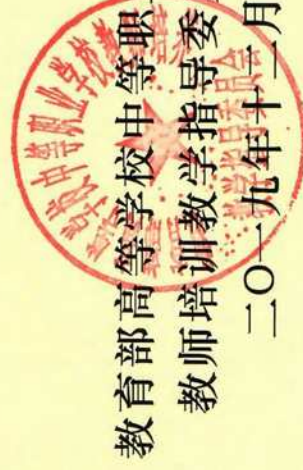 教育部高等学校中等职
教师培训教学指导委
二〇一九年十二月